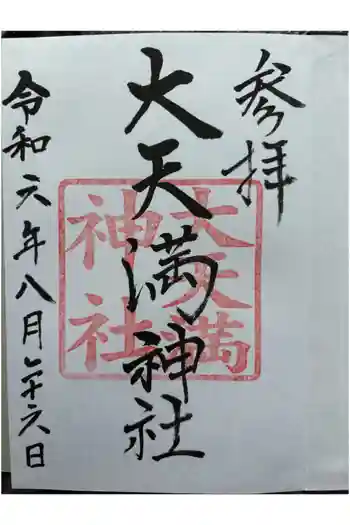 参拝
大天満神社
大天満
神社
令和六年八月二十六日